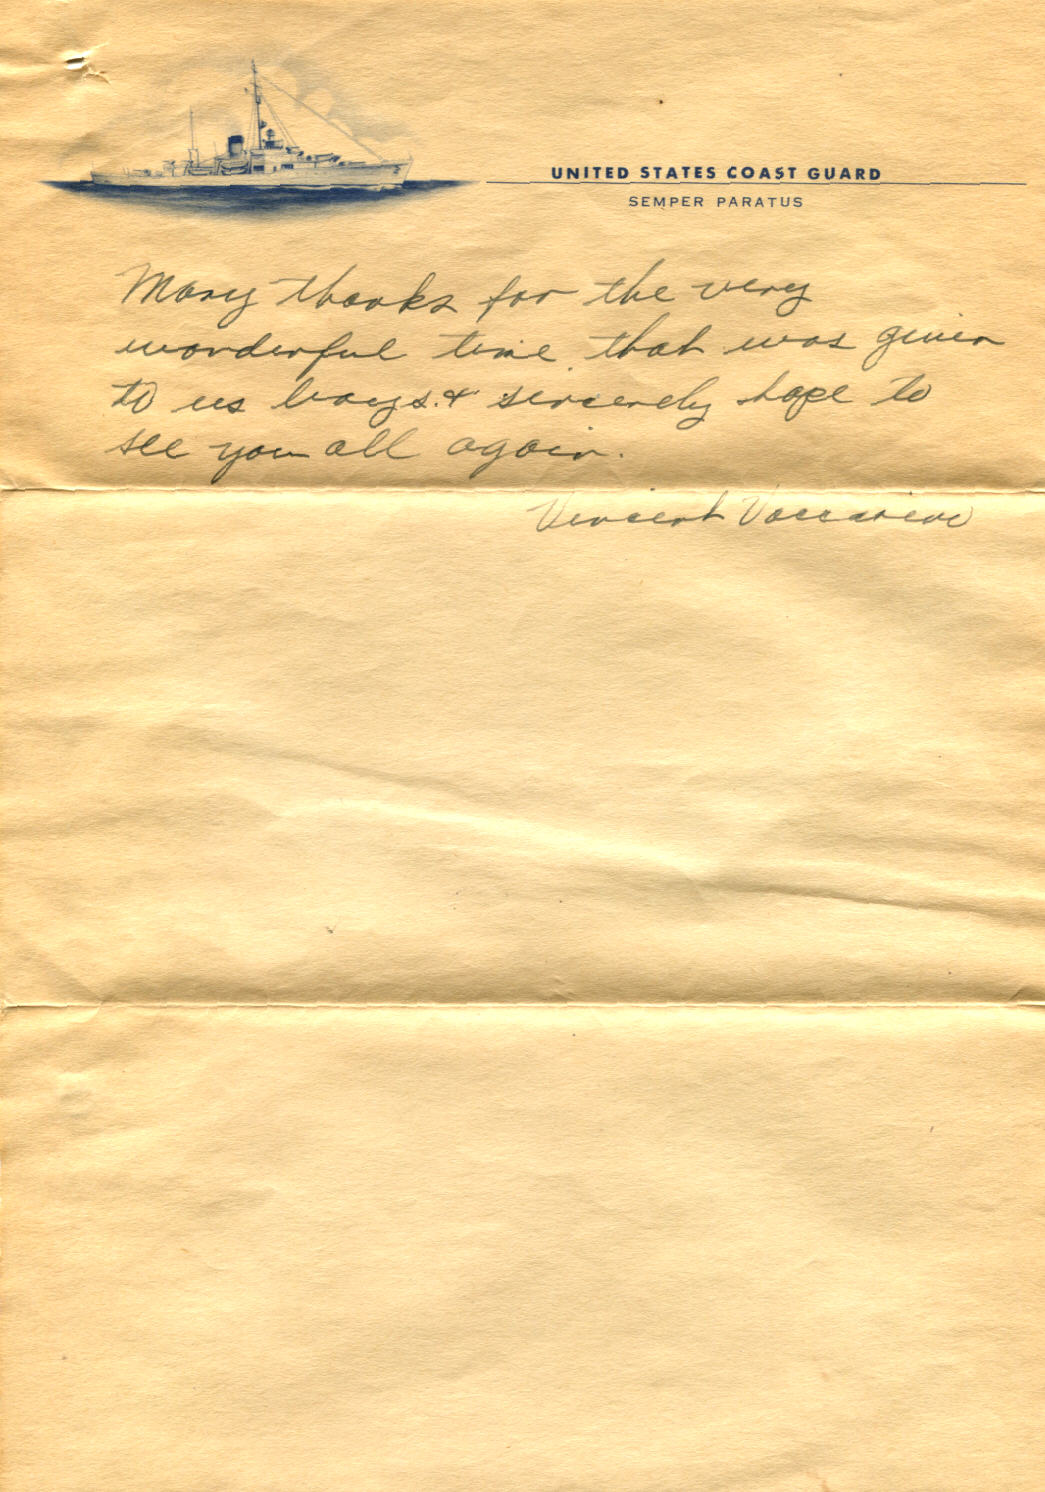 UNITED STATES COAST GUARD
SEMPER PARATUS
Many thanks for the very
wonderful time that was given
to us boys. & sincerely hope to
see you all again.
Vincent Vaccarino